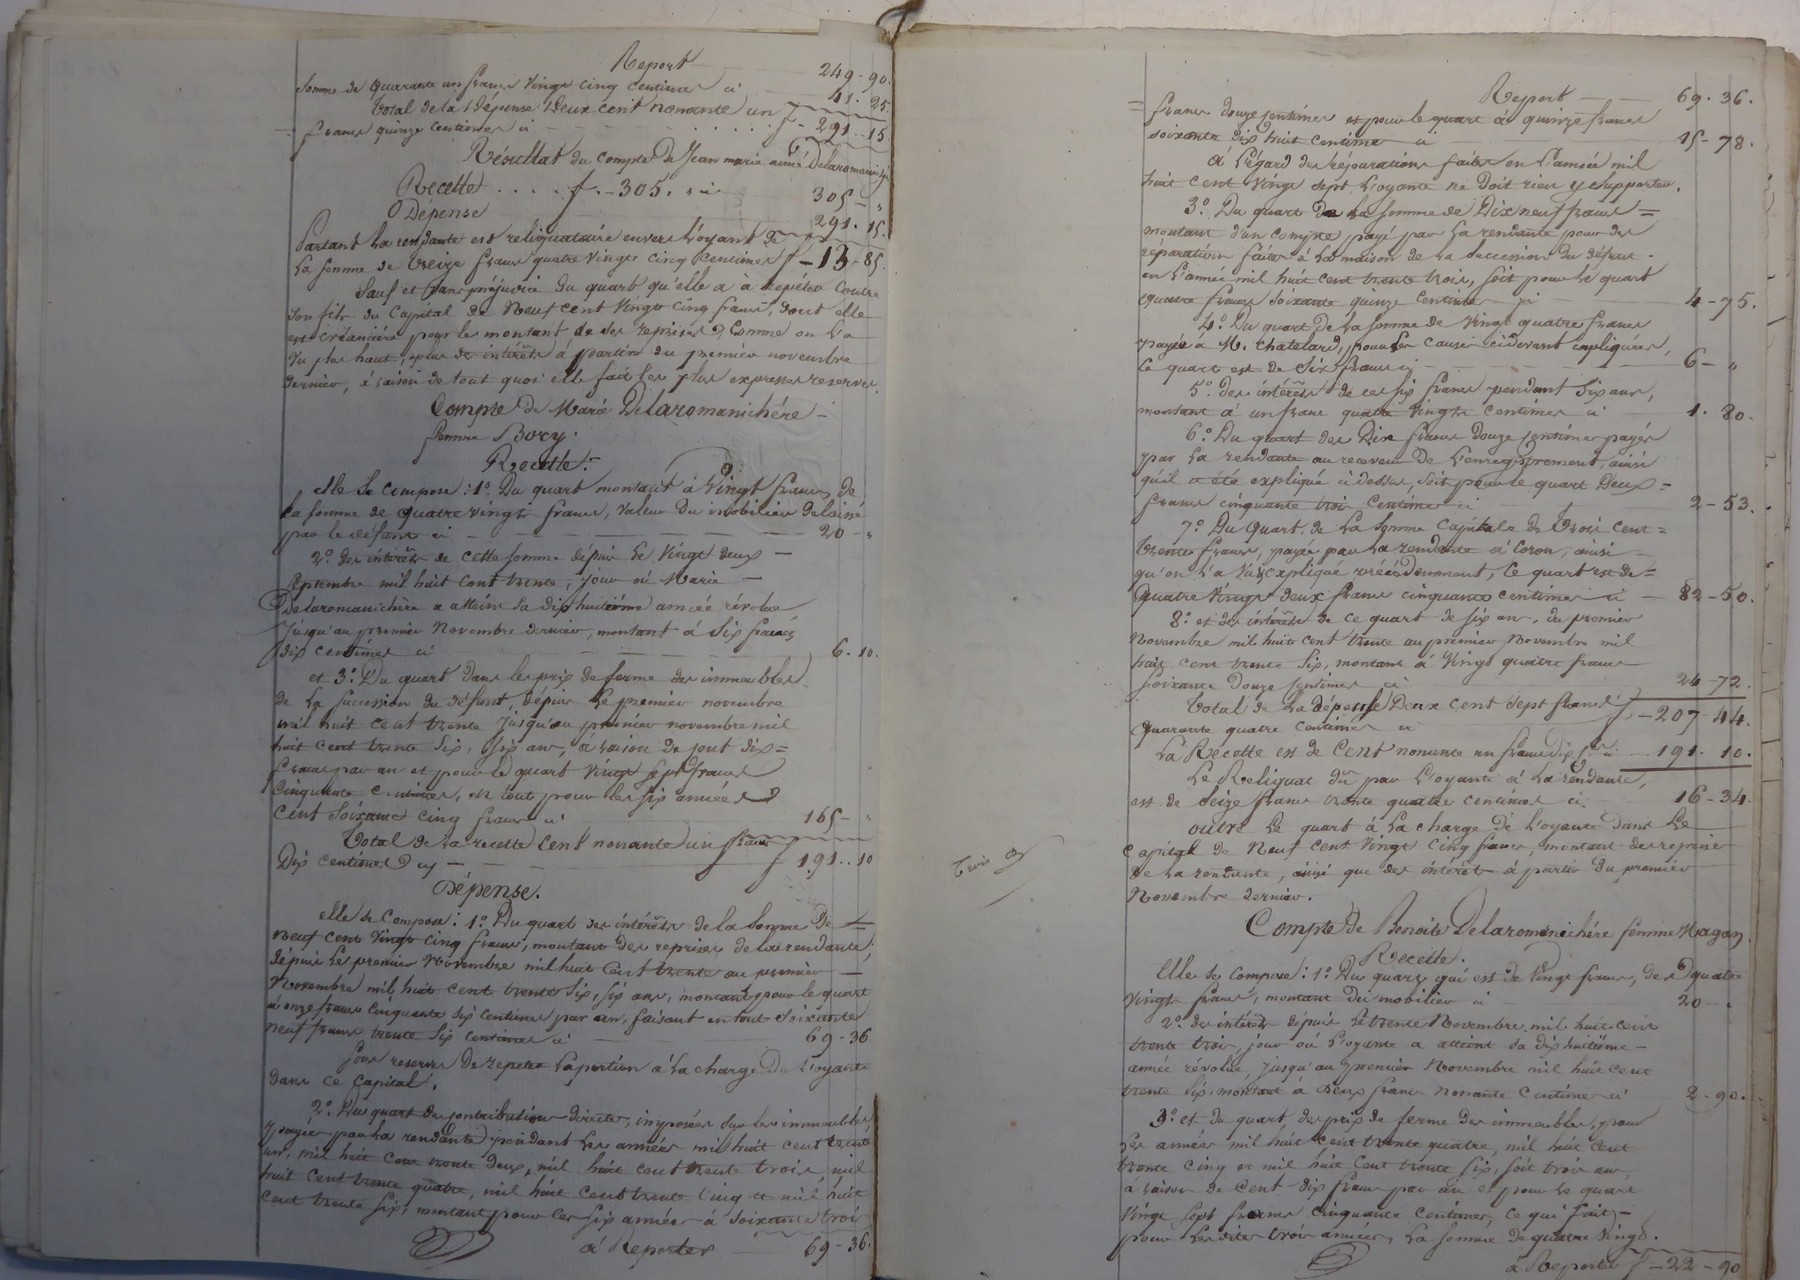 Report 249-90.
somme de quarante un francs vingt cinq centimes ci 41. 25
Total de la dépense deux cent nonante un
francs quinze centimes ci f - 291..15
Résultat du compte de Jean marie aimé Delaromanichère
Recette . . . . f. -305. " ci 305 - "
Dépense 291. 15.
Partant la rendante est reliquataire envers l'oyant de
la somme de treize francs quatre vingt cinq centimes f - 13 - 85.
Sauf et sans préjudice du quart qu'elle a à répéter contre
son fils du capital de neuf cent vingt cinq francs, dont elle
est créancière pour le montant de ses reprises, comme on l'a
vu plus haut, plus des intérêts à partir du premier novembre
dernier, à raison de tout quoi elle fait les plus expresses reserves.
Compte de Marie Delaromanichére -
femme Bory.
Recette.
Elle se compose : 1º. Du quart montant à vingt francs, de
la somme de quatre vingt francs, valeur du mobilier délaissé
par le défunt ci 20 - "
2º. des intérêts de cette somme dépuis le vingt deux -
septembre mil huit cent trente, jour où Marie -
Delaromanichère a atteint sa dix huitième année révolue
jusqu'au premier novembre dernier, montant à six francs
dix centimes ci 6. 10.
et 3º. Du quart dans le prix de ferme des immeubles
de la succession du défunt, dépuis le premier novembre
mil huit cent trente jusqu'au premier novembre mil
huit cent trente six, six ans, à raison de cent dix =
francs par an et pour le quart vingt sept francs
cinquante centimes, en tout pour les six années
cent soixante cinq francs ci 165 - "
Total de la recette cent nonante un francs
Dix centimes cy - f 191..10
Dépense.
elle se compose : 1º. Du quart des intérêts de la somme de
neuf cent vingt cinq francs, montant des reprises de la rendante,
dépuis le premier Novembre mil huit cent trente au premier -
Novembre mil huit cent trente six, six ans, montant pour le quart
à onze francs cinquante six centimes par an, faisant en tout soixante
neuf francs trente six centimes ci 69-36
sous reserve de répéter la portion à la charge de l'oyante
dans ce capital.
2º. Du quart des contributions directes, imposées sur les immeubles,
payées par la rendante pendant les années mil huit cent trente
un, mil huit cent trente deux, mil huit cent trente trois, mil
huit cent trente quatre, mil huit cent trente cinq et mil huit
cent trente six, montant pour les six années à soixante trois
à Reporter 69-36.
Report 69. 36.
francs douze centimes et pour le quart à quinze francs
soixante dix huit centimes ci 15-78.
A l'égard des réparations faites en l'année mil
huit cent vingt sept l'oyante ne doit rien y supporter.
3º. Du quart de la somme de Dix neuf francs =
montant d'un compte payé par la rendante pour des
réparations faites à la maison de la succession du défunt -
en l'année mil huit cent trente trois, soit pour le quart
quatre francs soixante quinze centimes ci 4-75.
4º. Du quart de la somme de vingt quatre francs
payée à M. Chatelard, pour les causes cidevant expliquées,
le quart est de six francs ci 6- "
5º. des intérêts de ces six francs pendant six ans,
montant à un franc quatre vingts centimes ci 1. 80.
6º. Du quart des Dix francs douze centimes payés
par la rendante au receveur de l'enregistrement, ainsi
qu'il a été expliqué ci dessus, soit pour le quart Deux =
francs cinquante trois centimes ci 2-53.
7º. Du quart de la somme capitale de trois cent =
trente francs, payée par la rendante à Coron, ainsi -
qu'on l'a vu expliqué précédemment, le quart est de =
quatre vingt deux francs cinquante centimes ci - 82-50.
8º. et des intérêts de ce quart de six ans, du premier
novembre mil huit cent trente au premier novembre mil
huit cent trente six, montant à vingt quatre francs
soixante douze centimes ci 24-72.
Total de la dépense Deux cent sept francs
quarante quatre centimes ci f. -207-44.
La Recette est de cent nonante un francs dix ci 191. 10.
Le Reliquat dû par l'oyante à la rendante,
est de seize francs trente quatre centimes ci. 16-34.
outre le quart à la charge de l'oyante dans le
capital de neuf cent vingt cinq francs, montant des reprises
de la rendante, ainsi que des intérêts à partir du premier
Novembre dernier.
Trois
Compte de Benoite Delaromanichére femme Magan.
Recette.
Elle se compose : 1º. Du quart, qui est de vingt francs, des quatre
vingts francs, montant du mobilier ci 20 - "
2º. des intérêts dépuis le trente Novembre mil huit cent
trente trois, jour où l'oyante a atteint sa dix huitième -
année révolue, jusqu'au premier Novembre mil huit cent
trente six, montant à Deux francs nonante centimes ci 2. 90.
3º. et du quart, des prix de ferme des immeubles, pour
les années mil huit cent trente quatre, mil huit cent
trente cinq et mil huit cent trente six, soit trois ans
à raison de cent dix francs par an et pour le quart
vingt sept francs cinquante centimes, ce qui fait -
pour les dites trois années, la somme de quatre vingt.
à Reporter f - 22-90